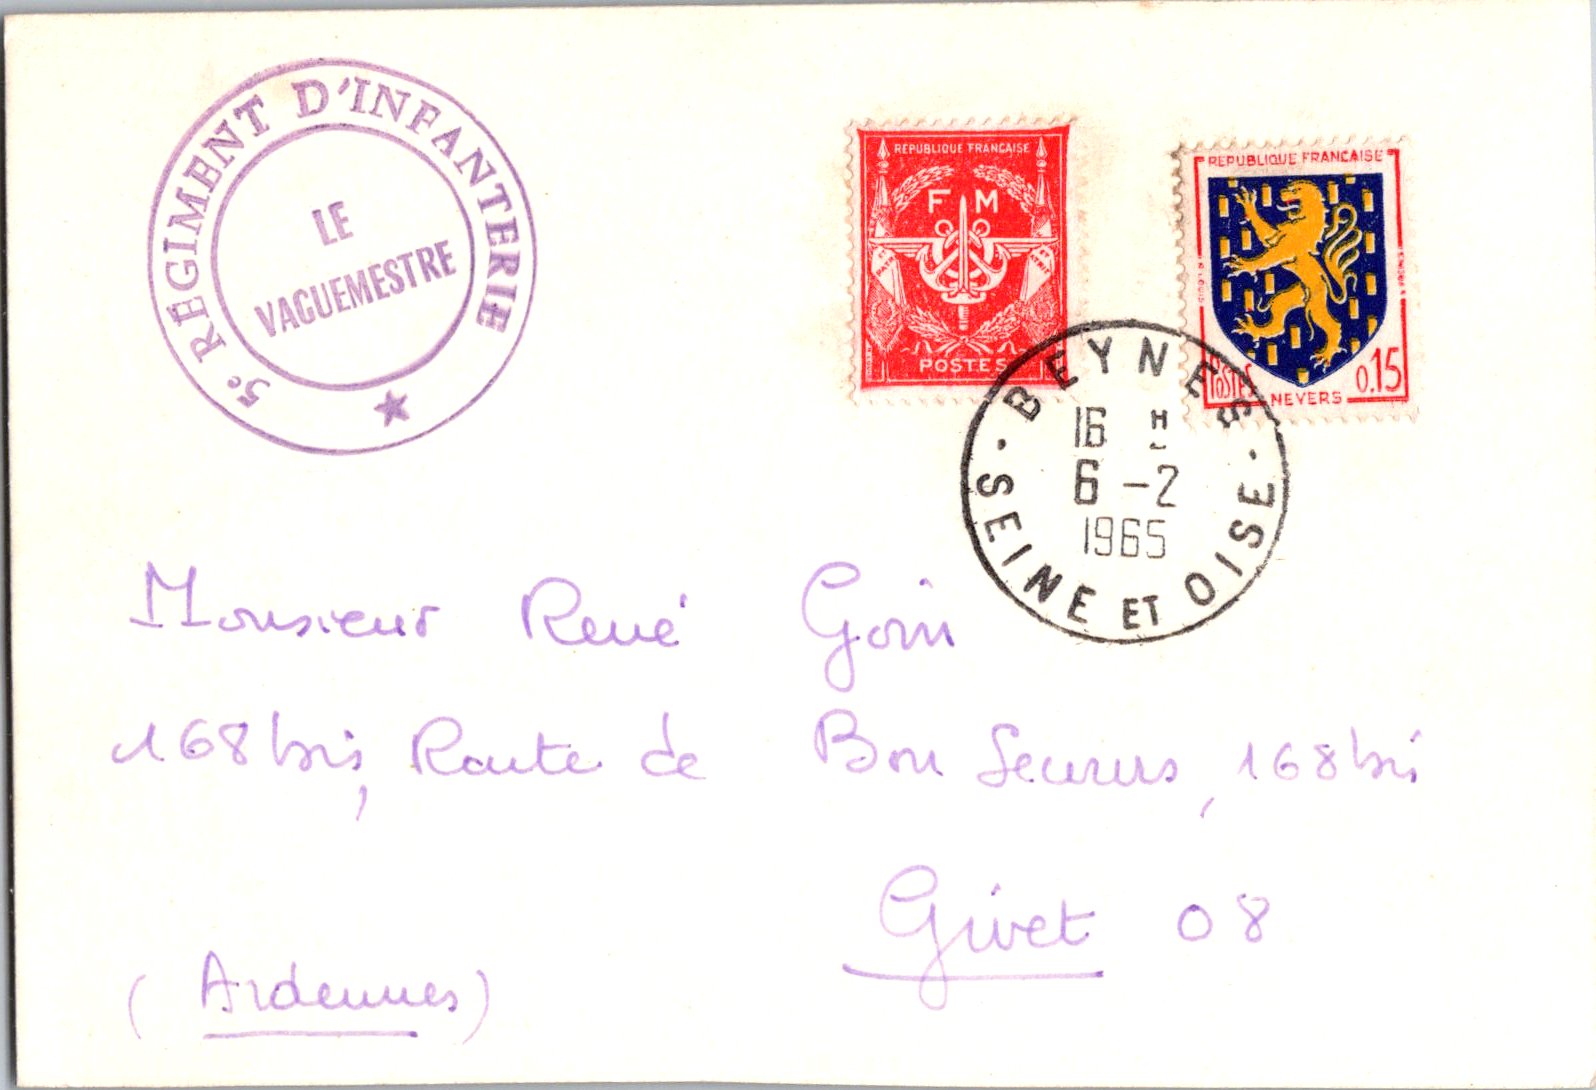 5e RÉGIMENT D'INFANTERIE
LE
VAGUEMESTRE
REPUBLIQUE FRANÇAISE
F M
POSTES
REPUBLIQUE FRANCAISE
POSTES 0,15
NEVERS
BEYNES
16 H
6 -2
1965
SEINE ET OISE
Monsieur René Goin
168 bis, Route de Bon Secours, 168 bis
Givet 08
(Ardennes)